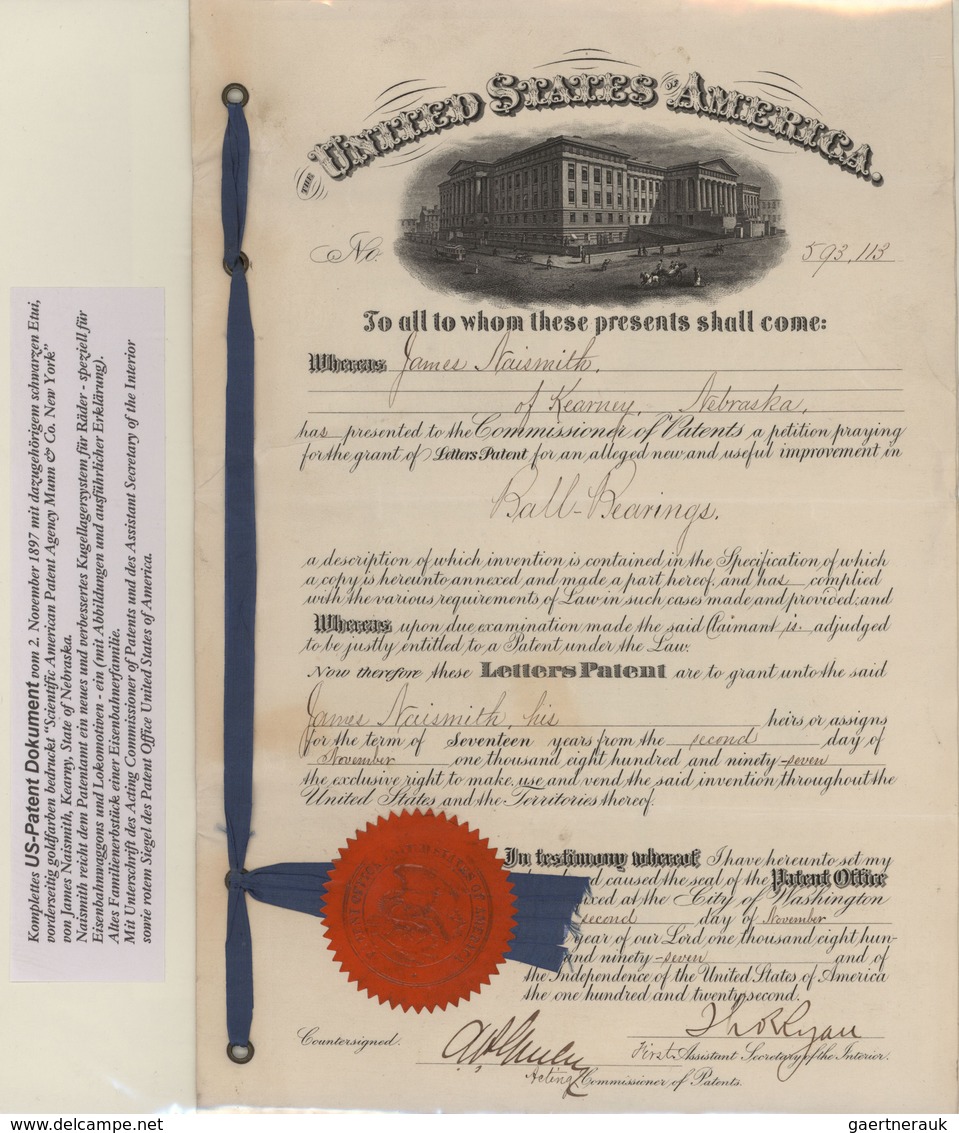 Komplettes US-Patent Dokument vom 2. November 1897 mit dazugehörigem schwarzen Etui,
vorderseitig goldfarben bedruckt "Scientific American Patent Agency Munn & Co. New York"
von James Naismith, Kearny, State of Nebraska.
Naismith reicht dem Patentamt ein neues und verbessertes Kugellagersystem für Räder - speziell für
Eisenbahnwaggons und Lokomotiven - ein (mit Abbildungen und ausführlicher Erklärung).
Altes Familienerbstück einer Eisenbahnerfamilie.
Mit Unterschrift des Acting Commissioner of Patents und des Assistant Secretary of the Interior
sowie rotem Siegel des Patent Office United States of America.
THE UNITED STATES OF AMERICA.
No. 593,113
To all to whom these presents shall come:
Whereas James Naismith,
of Kearney, Nebraska,
has presented to the Commissioner of Patents a petition praying
for the grant of Letters Patent for an alleged new and useful improvement in
Ball-Bearings.
a description of which invention is contained in the Specification of which
a copy is hereunto annexed and made a part hereof, and has complied
with the various requirements of Law in such cases made and provided; and
Whereas upon due examination made the said Claimant is adjudged
to be justly entitled to a Patent under the Law.
Now therefore these Letters Patent are to grant unto the said
James Naismith, his heirs or assigns
for the term of Seventeen years from the second day of
November one thousand eight hundred and ninety-seven
the exclusive right to make, use and vend the said invention throughout the
United States and the Territories thereof.
In testimony whereof I have hereunto set my
caused the seal of the Patent Office
at the City of Washington
second day of November
year of our Lord one thousand eight hun-
and ninety-seven and of
the Independence of the United States of America
the one hundred and twenty second.
Thos Ryan
Countersigned.
First Assistant Secretary of the Interior.
Acting Commissioner of Patents.
www.delcampe.net
gaertnerauk